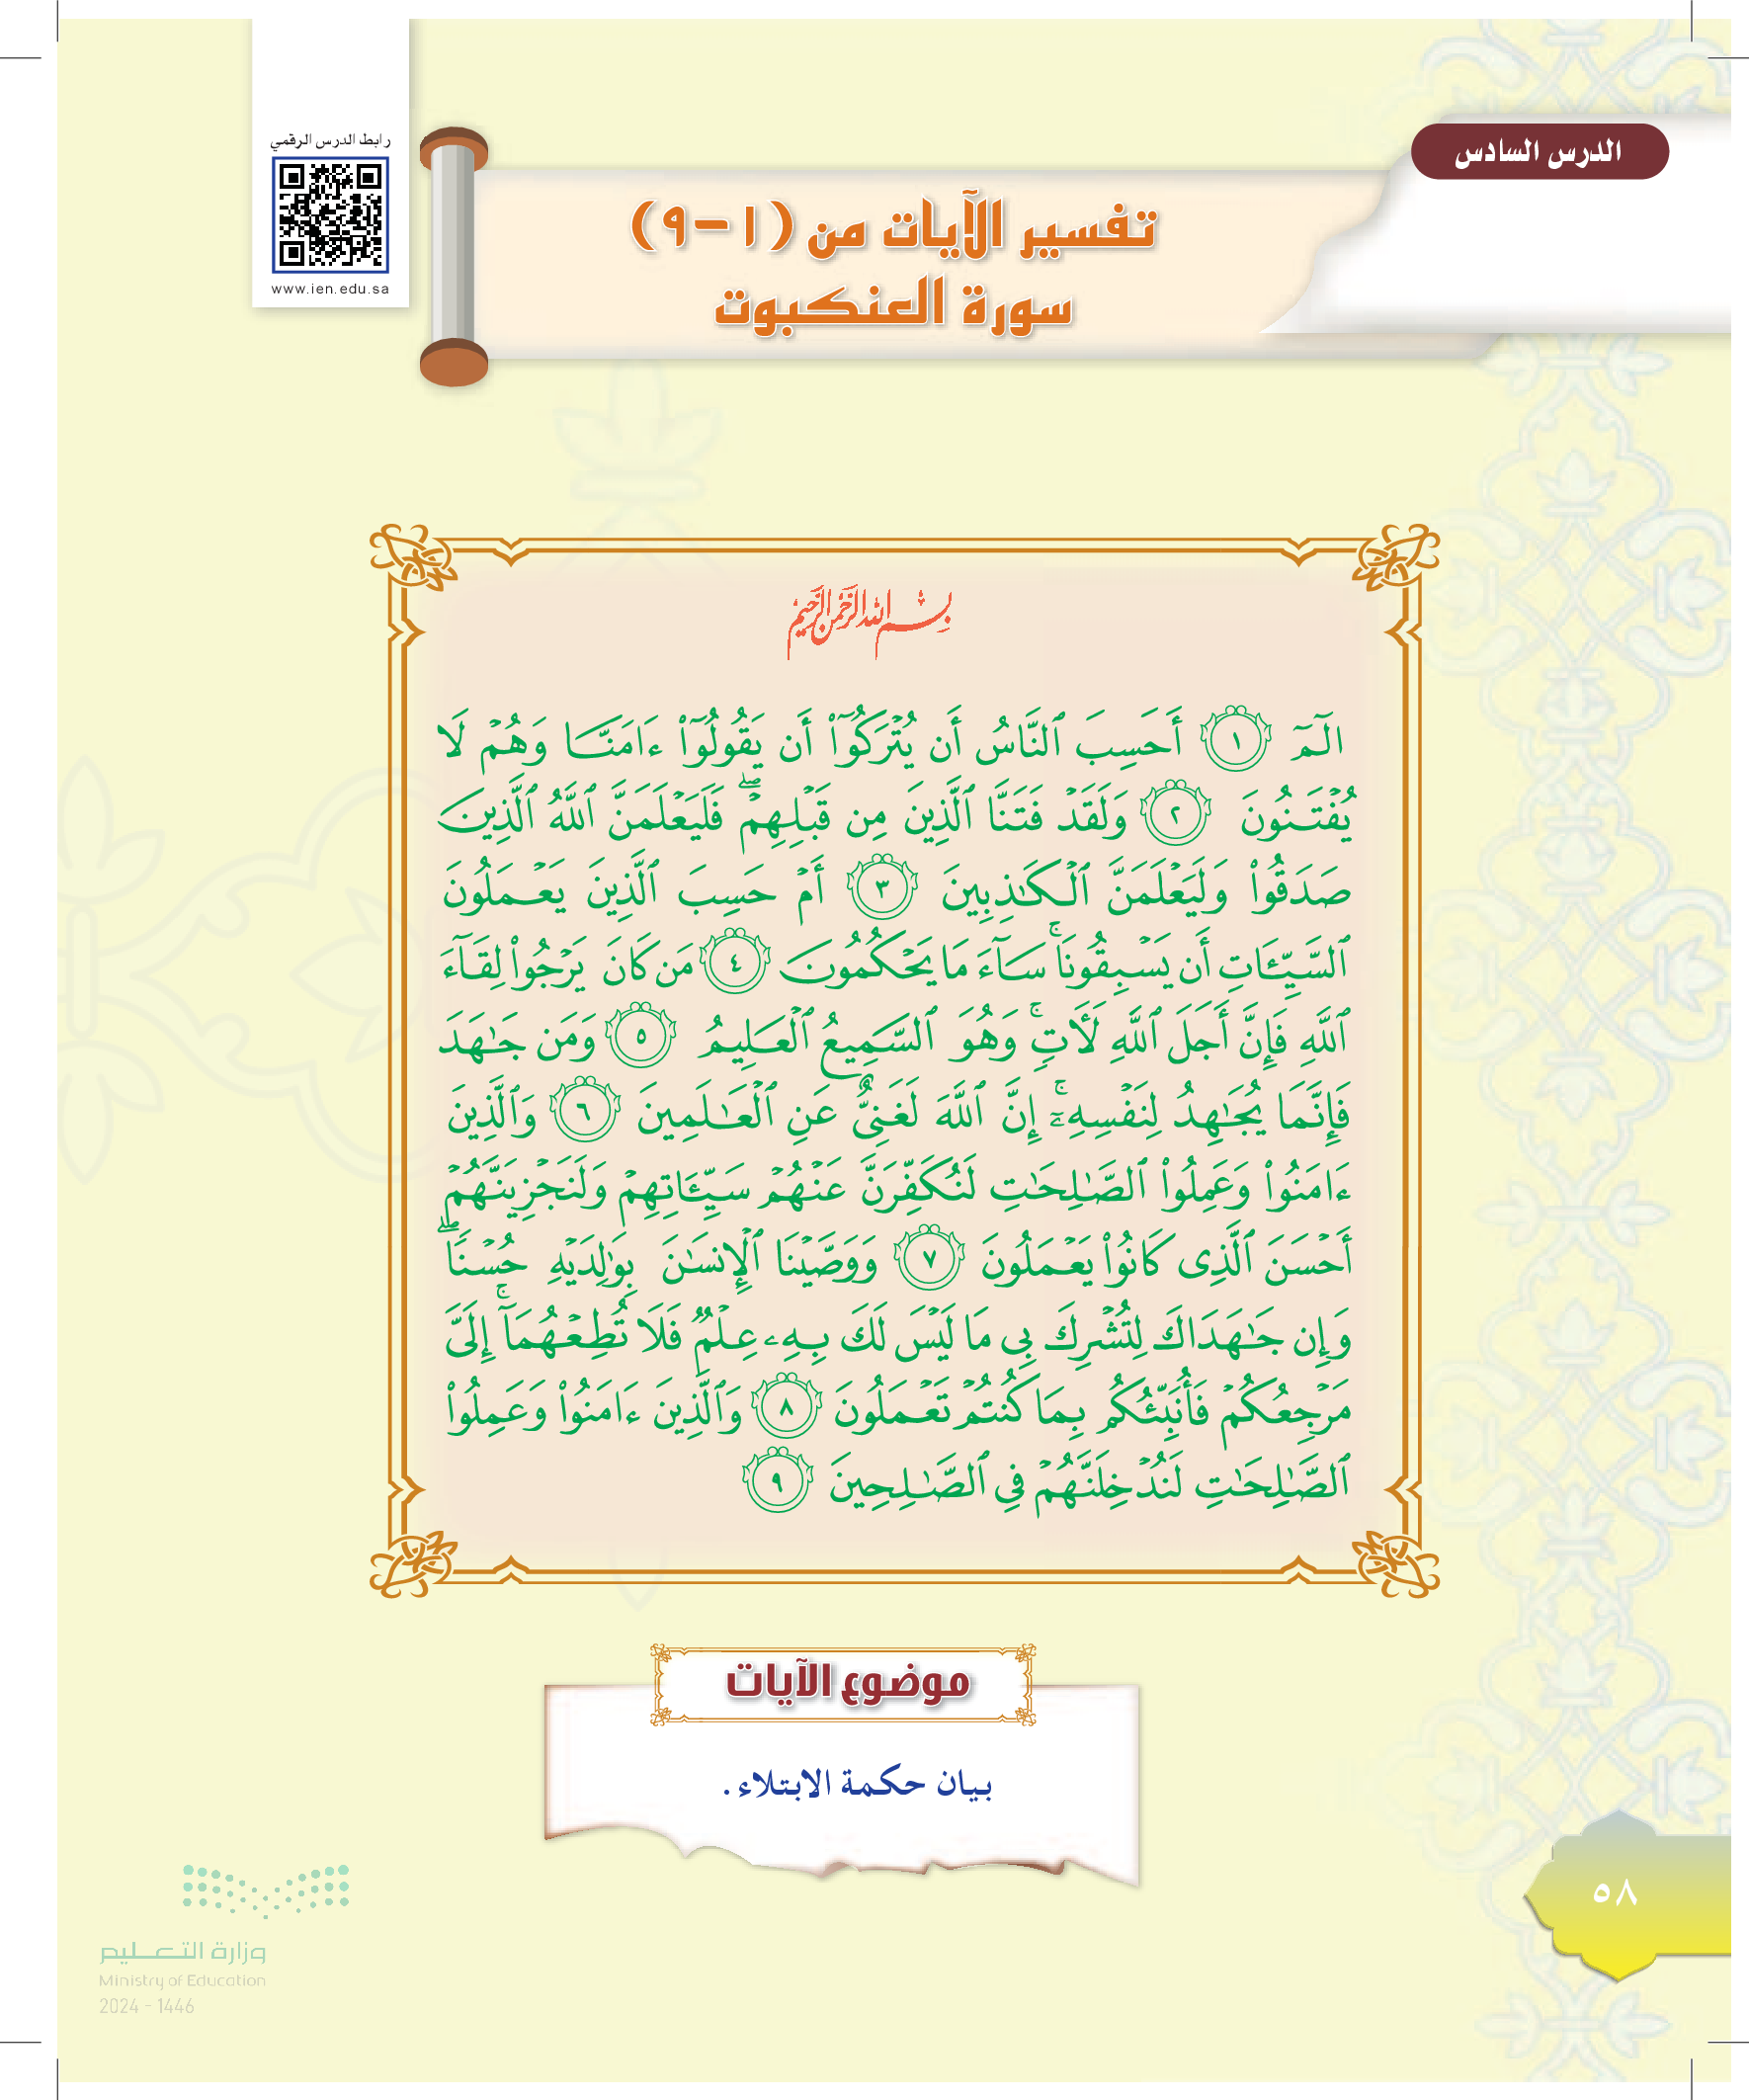 الدرس السادس
رابط الدرس الرقمي
www.ien.edu.sa
تفسير الآيات من (١-٩)
سورة العنكبوت
بِسْمِ اللَّهِ الرَّحْمَٰنِ الرَّحِيمِ
الٓمٓ ١ أَحَسِبَ ٱلنَّاسُ أَن يُتْرَكُوٓا۟ أَن يَقُولُوٓا۟ ءَامَنَّا وَهُمْ لَا
يُفْتَنُونَ ٢ وَلَقَدْ فَتَنَّا ٱلَّذِينَ مِن قَبْلِهِمْ ۖ فَلَيَعْلَمَنَّ ٱللَّهُ ٱلَّذِينَ
صَدَقُوا۟ وَلَيَعْلَمَنَّ ٱلْكَـٰذِبِينَ ٣ أَمْ حَسِبَ ٱلَّذِينَ يَعْمَلُونَ
ٱلسَّيِّـَٔاتِ أَن يَسْبِقُونَا ۚ سَآءَ مَا يَحْكُمُونَ ٤ مَن كَانَ يَرْجُوا۟ لِقَآءَ
ٱللَّهِ فَإِنَّ أَجَلَ ٱللَّهِ لَـَٔاتٍ ۚ وَهُوَ ٱلسَّمِيعُ ٱلْعَلِيمُ ٥ وَمَن جَـٰهَدَ
فَإِنَّمَا يُجَـٰهِدُ لِنَفْسِهِۦٓ ۚ إِنَّ ٱللَّهَ لَغَنِىٌّ عَنِ ٱلْعَـٰلَمِينَ ٦ وَٱلَّذِينَ
ءَامَنُوا۟ وَعَمِلُوا۟ ٱلصَّـٰلِحَـٰتِ لَنُكَفِّرَنَّ عَنْهُمْ سَيِّـَٔاتِهِمْ وَلَنَجْزِيَنَّهُمْ
أَحْسَنَ ٱلَّذِى كَانُوا۟ يَعْمَلُونَ ٧ وَوَصَّيْنَا ٱلْإِنسَـٰنَ بِوَٰلِدَيْهِ حُسْنًا ۖ
وَإِن جَـٰهَدَاكَ لِتُشْرِكَ بِى مَا لَيْسَ لَكَ بِهِۦ عِلْمٌ فَلَا تُطِعْهُمَآ ۚ إِلَىَّ
مَرْجِعُكُمْ فَأُنَبِّئُكُم بِمَا كُنتُمْ تَعْمَلُونَ ٨ وَٱلَّذِينَ ءَامَنُوا۟ وَعَمِلُوا۟
ٱلصَّـٰلِحَـٰتِ لَنُدْخِلَنَّهُمْ فِى ٱلصَّـٰلِحِينَ ٩
موضوع الآيات
بيان حكمة الابتلاء .
٥٨
وزارة التعليم
Ministry of Education
2024 - 1446